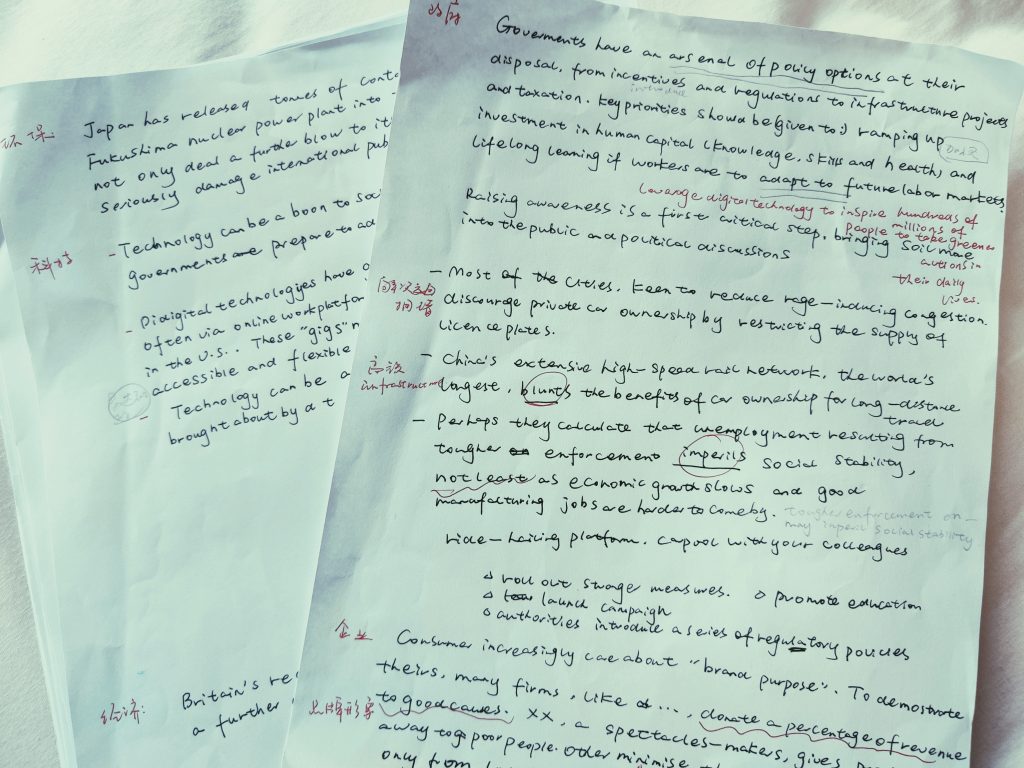 环保
Japan has released tonnes of conta
Fukushima nuclear power plant into
not only deal a furthe blow to it
seriously damage international pub
科技
- Technology can be a boon to soc
governments are prepare to ad
- Didigital technologies have
often via online workplatfor
in the U.S.. These "gigs"
accessible and flexible
- Technology can be a
brought about by a t
经济:
Britain's re
a further
政府
Goverments have an arsenal of policy options at their
disposal, from incentives and regulations to infrastructure projects
introduce
and taxation. Key priorities shoud be (given to:) ramping up
investment in human capital (knowledge, skills and health, and
lifelong learning if workers are to adapt to future labor markets.
Leverage digital technology to inspire hundreds of
millions of
people to take greener
actions in
their daily
lives.
Raising awareness is a first critical step, bringing soil more
into the public and political discussions
- Most of the cities. Keen to reduce rage-inducing congestion.
discourage private car ownership by restricting the supply of
licence plates.
高铁
infrastructure
- China's extensive high-speed rail network, the world's
largest, blunts the benefits of car ownership for long-distance
travel
- Perhaps they calculate that unemployment resulting from
tougher enforcement imperils social stability,
not least as economic growth slows and good
manufacturing jobs are harder to come by.
tougher enforcement on-
may imperil social stability
ride-hailing platform. capool with your colleagues
roll out stronger measures.
promote education
launch campaign
authorities introduce a series of regulatory policies
企业
Consumer increasingly care about "brand purpose". To demostrate
theirs, many firms, like ..., donate a percentage of revenue
to good causes. XX, a spectacles-makers, gives
away to poor people. Other minimise
only from